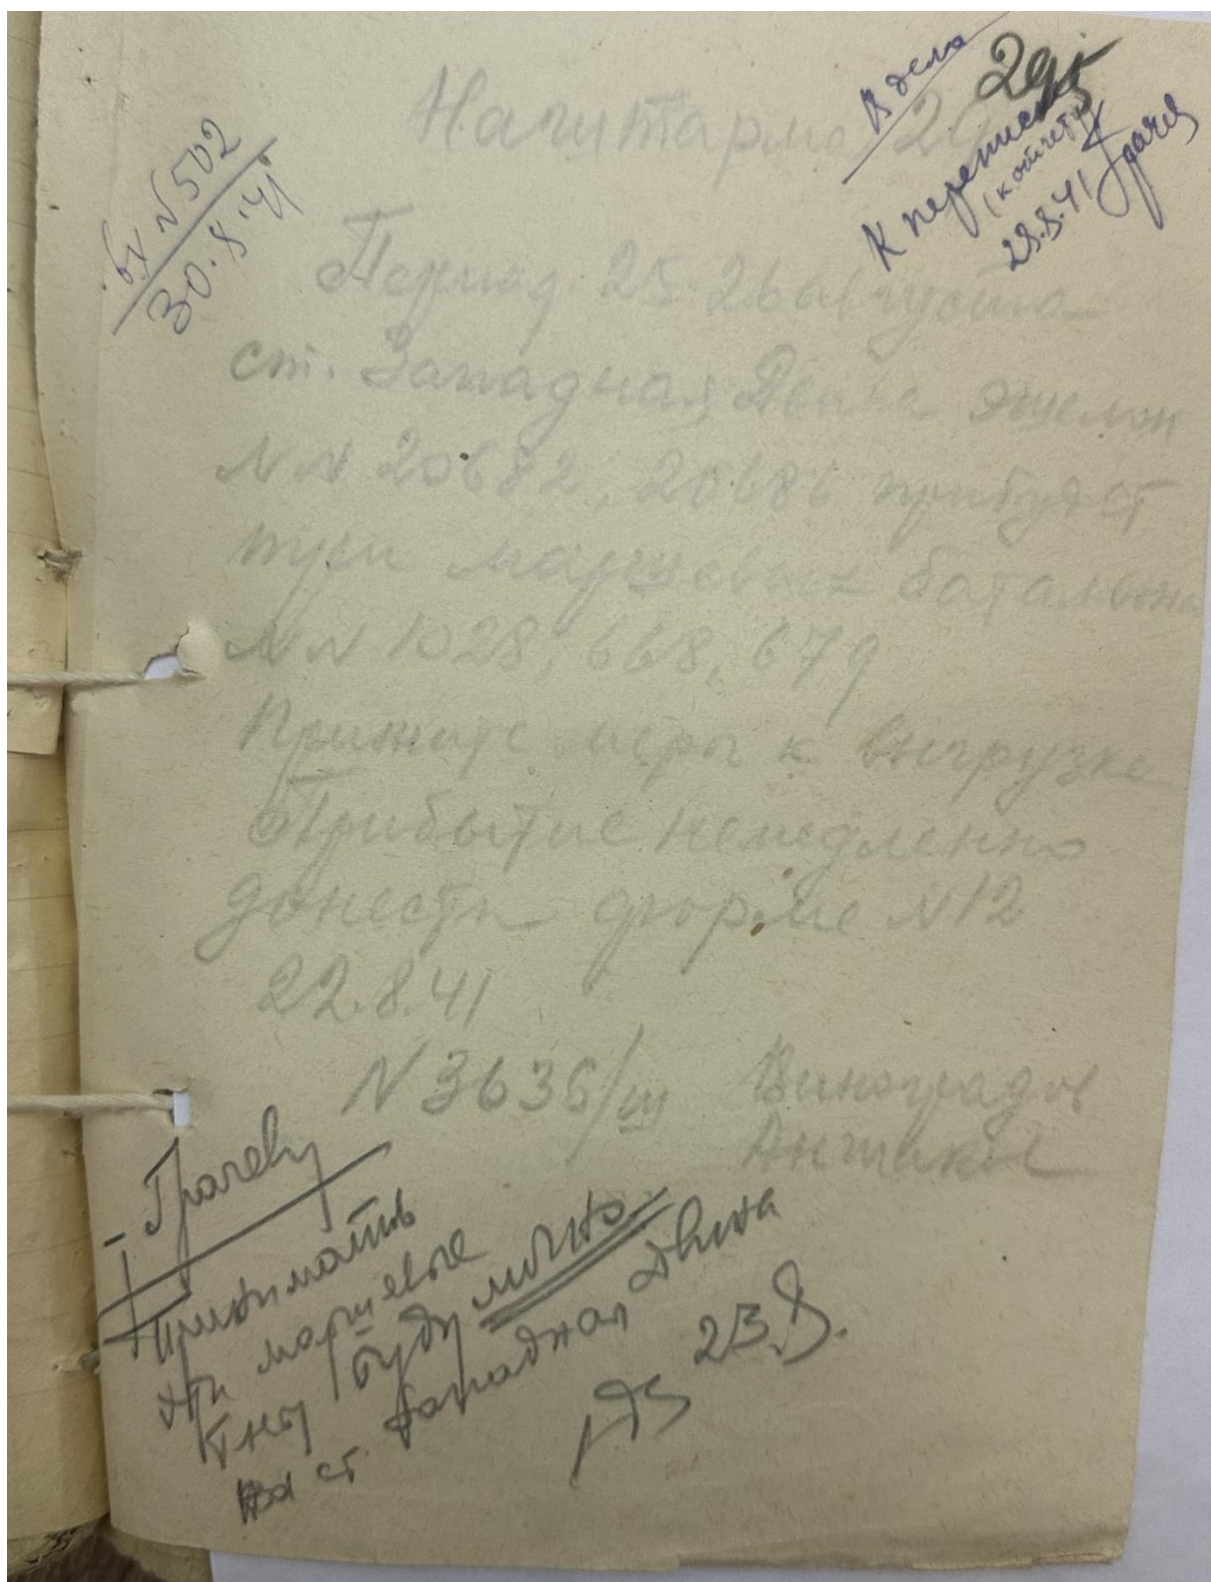 В дело
295
К переписке
(к отчету)
28.8.41 Грачев
вх N 502
30.8.41
Наштарм 29
Период 25-26 августа
ст. Западная Двина эшелон
NN 20682, 20686 прибудет
три маршевых батальона
NN 1028, 668, 679
Примите меры к выгрузке
Прибытие немедленно
донести форме N12
22.8.41
N 3636/ш Виноградов
Грачеву
Принимать
эти маршевые
буду лично
на ст. Западная Двина
23.8.